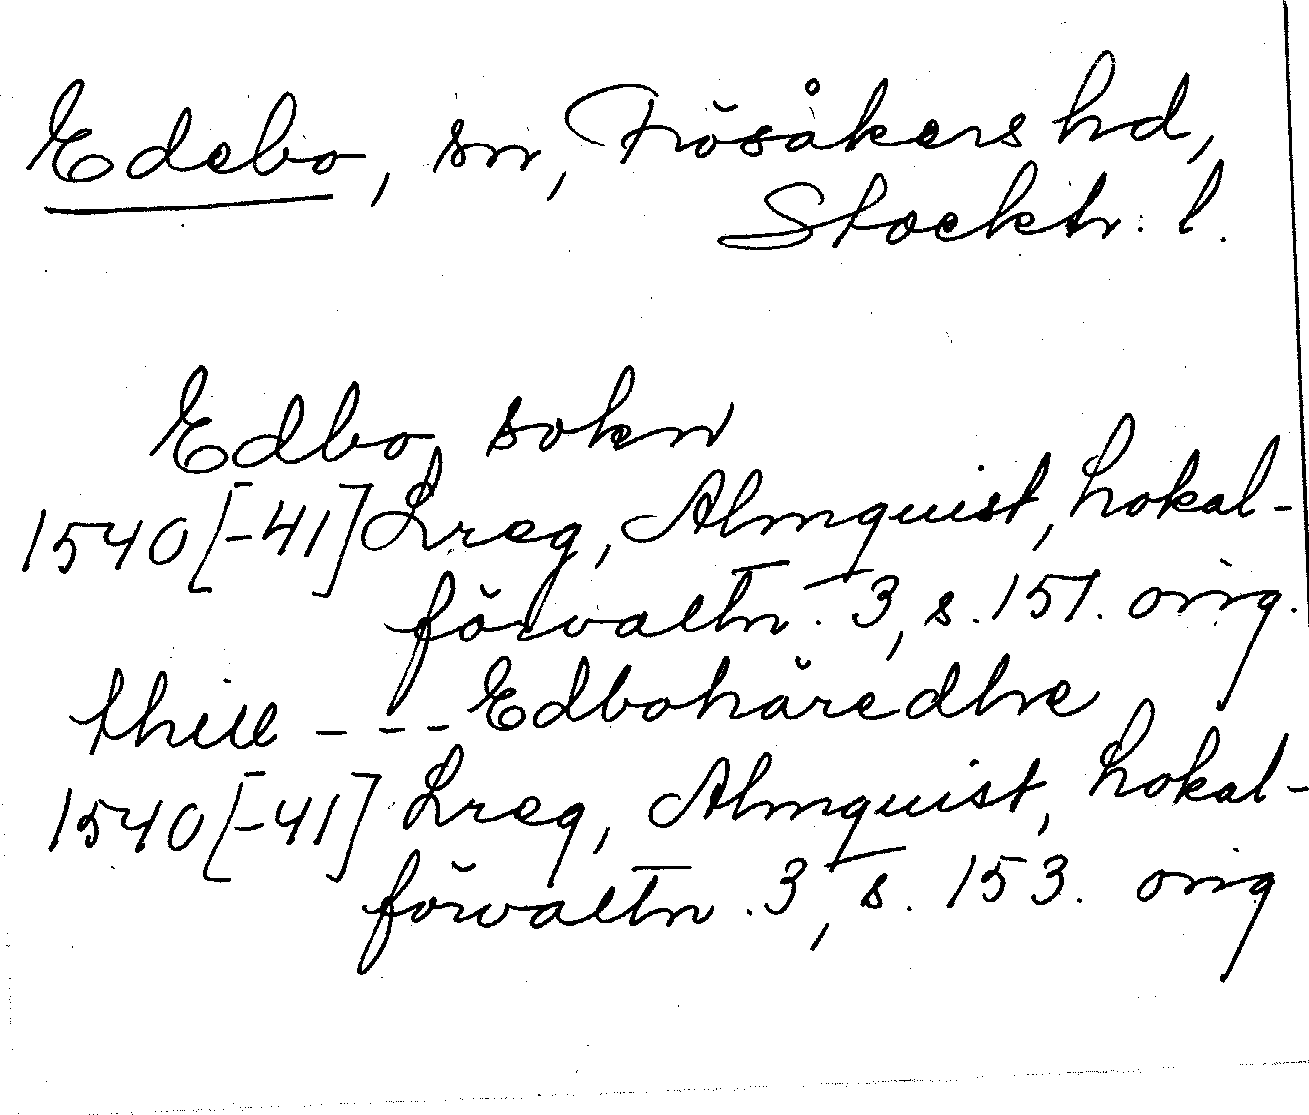 Edebo, sn, Frösåkers hd,
Stockh: l.
Edbo sokn
1540[-41] Lreg, Almquist, Lokal-
förvaltn. 3, s. 151. orig.
thill --- Edbohäredhe
1540[-41] Lreg, Almquist, Lokal-
förvaltn. 3, s. 153. orig